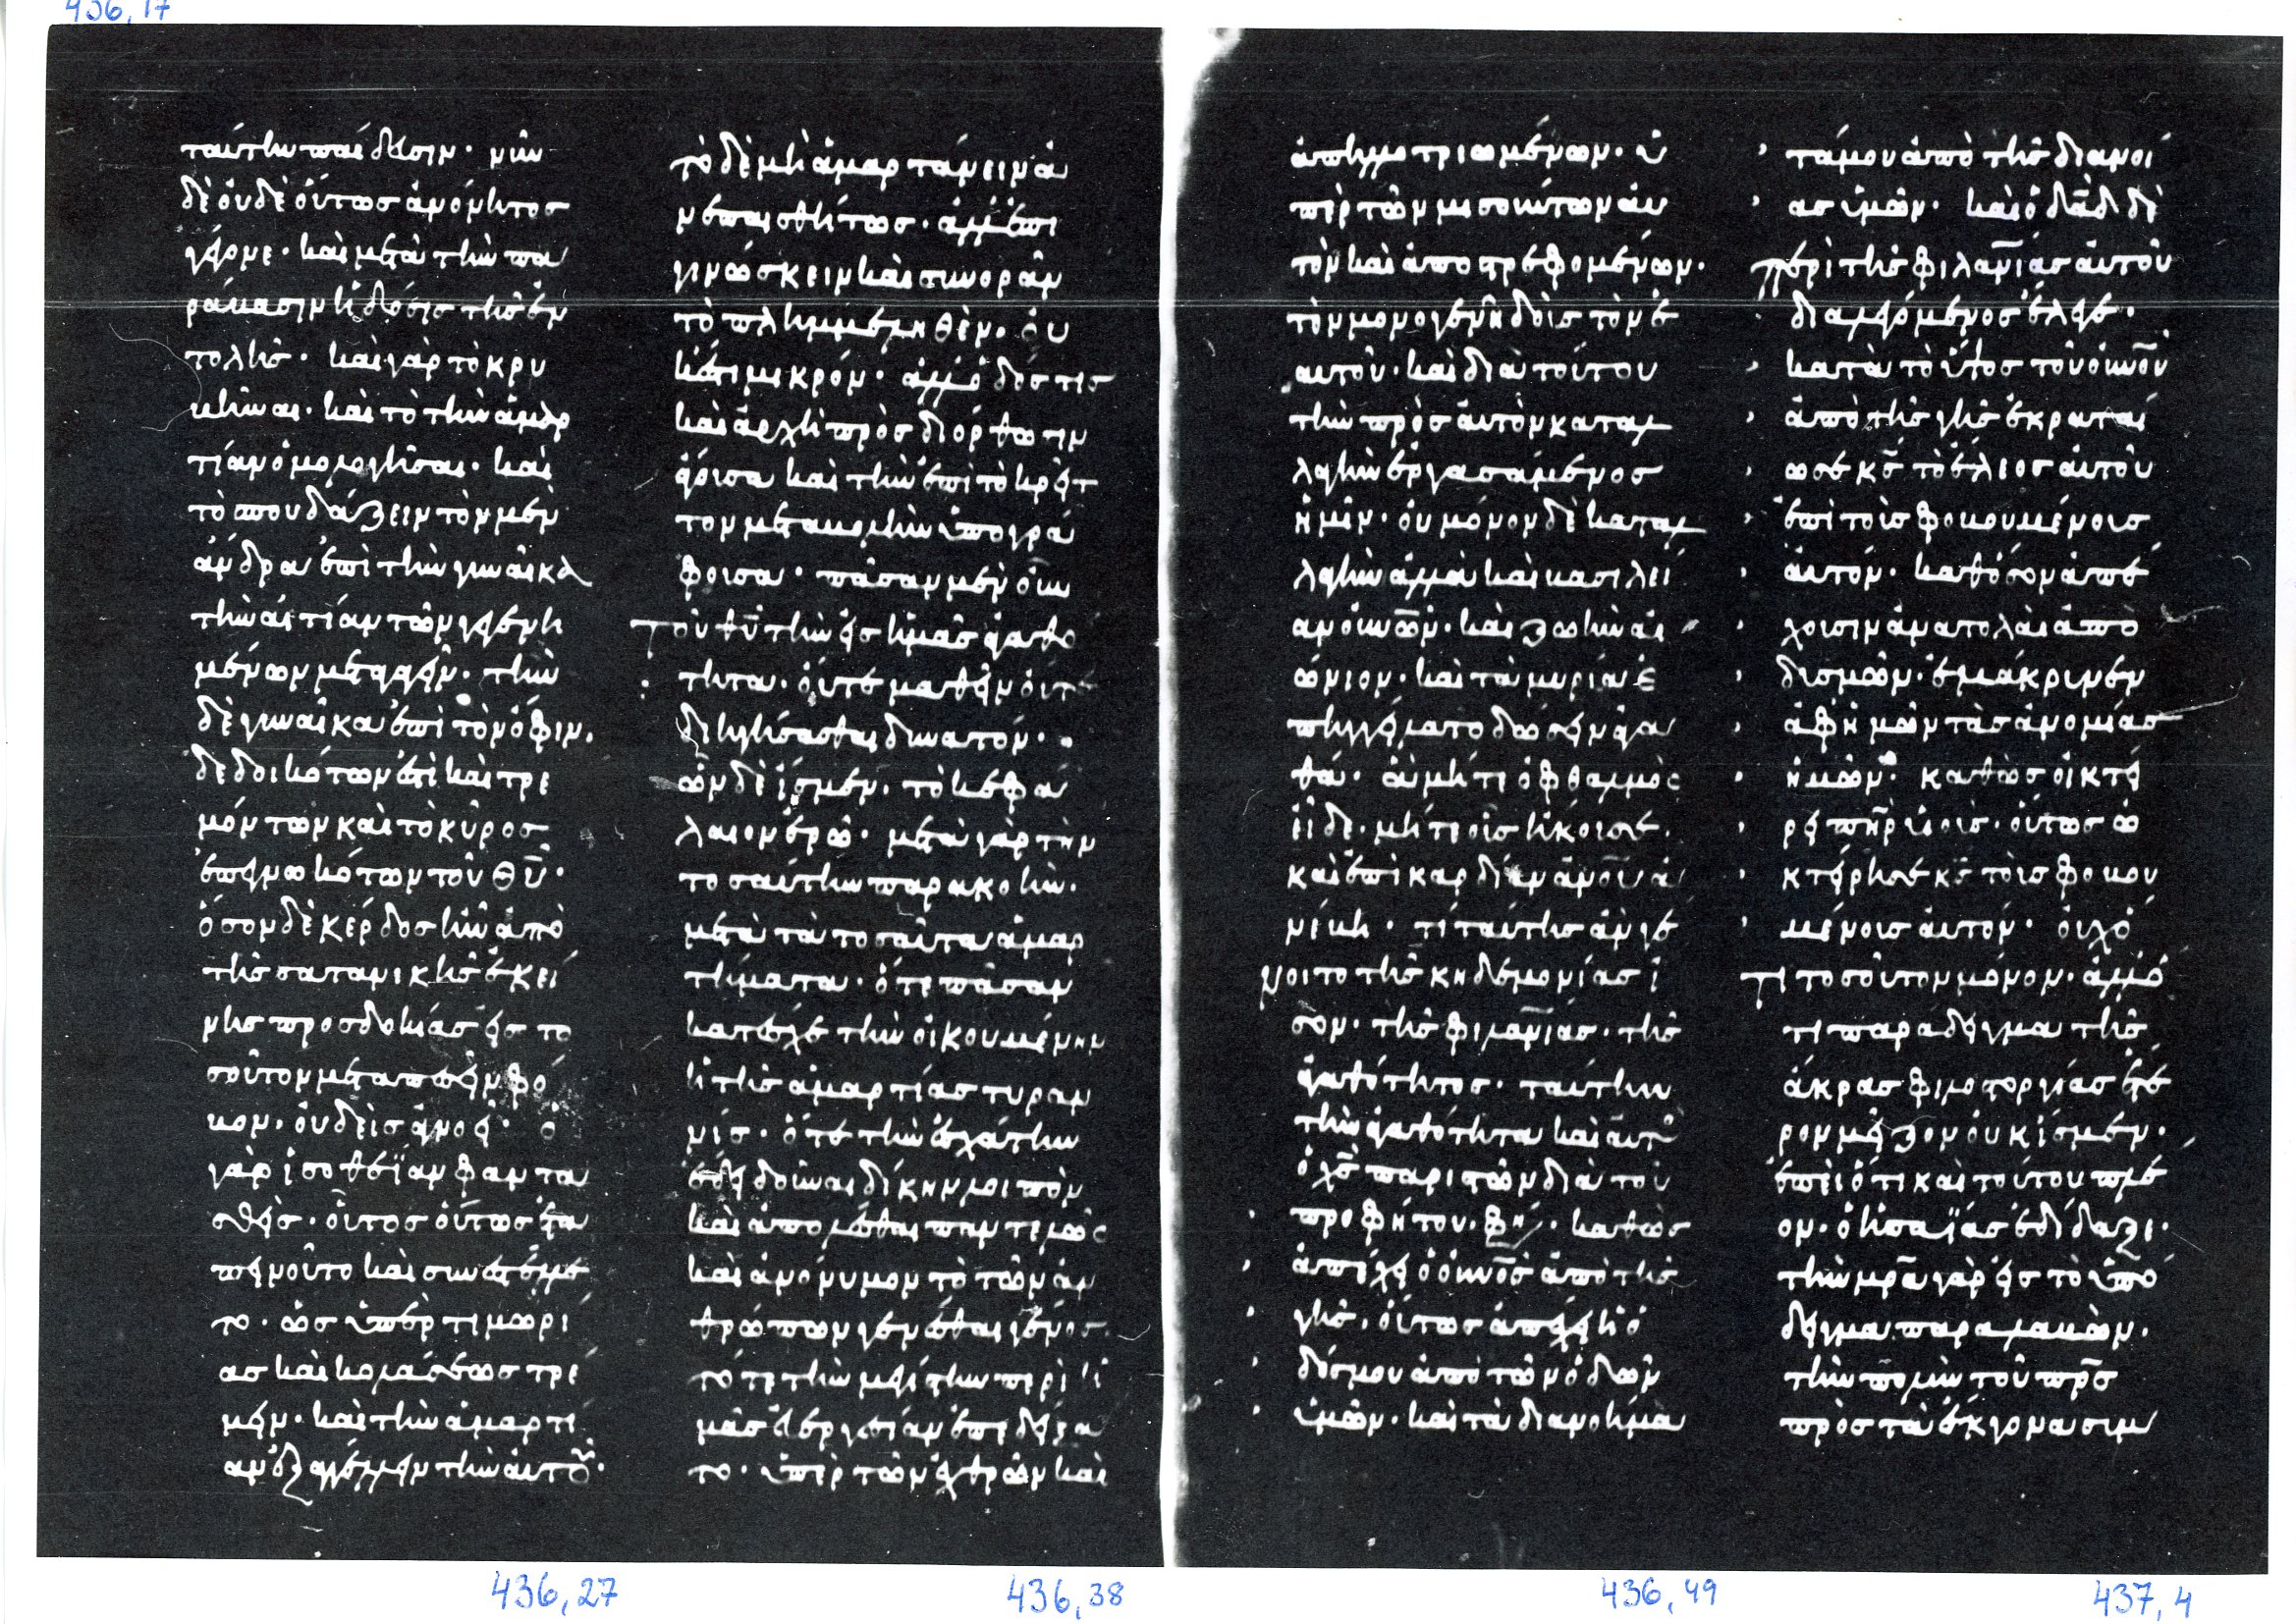 436,17
ταύτην παίδευσιν· νῦν
δὲ οὐδὲ οὕτως ἀνόνητος
γέγονε· καὶ μετὰ τὴν πα
ράβασιν ἡ δόσις τῆς ἐν
τολῆς· καὶ γὰρ τὸ κρυ
βῆναι· καὶ τὸ τὴν ἁμαρ
τίαν ὁμολογῆσαι· καὶ
τὸ σπουδάζειν τὸν μὲν
ἄνδρα ἐπὶ τὴν γυναῖκα
τὴν αἰτίαν τῶν γεγενη
μένων μεταγαγεῖν· τὴν
δὲ γυναῖκα ἐπὶ τὸν ὄφιν,
δεδοικότων ἐστὶ καὶ τρε
μόντων καὶ τὸ κῦρος
ἐπεγνωκότων τοῦ θῡ·
ὅσον δὲ κέρδος ἦν ἀπὸ
τῆς σατανικῆς ἐκεί
νης προσδοκίας εἰς το
σοῦτον μεταπεσεῖν φό
βον· οὐδεὶς ἀγνοεῖ· ὁ
γὰρ ἰσοθεΐαν φαντα
σθεὶς· οὗτος οὕτως ἐτα
πεινοῦτο καὶ συνεστέλλε
το· ὡς ὑπὲρ τιμωρί
ας καὶ κολάσεως τρέ
μειν· καὶ τὴν ἁμαρτί
αν ἐξαγγέλλειν τὴν αὐτοῦ·
τὸ δὲ μὴ ἁμαρτάνειν ἀ
νεπαισθήτως· ἀλλ' ἐπι
γινώσκειν καὶ συνορᾶν
τὸ πλημμεληθὲν· οὐ
κ ἔστι μικρόν· ἀλλ' ὁδός τις
καὶ ἀρχὴ πρὸς διόρθωσιν
φέρουσα καὶ τὴν ἐπὶ τὸ κρεῖτ
τον μεταβολὴν ὑπογρά
φουσα· πᾶσαν μὲν οὖν
τοῦ θῡ τὴν εἰς ἡμᾶς ἀγαθό
τητα· οὔτε μαθεῖν οὔτε
διηγήσασθαι δυνατόν·
ὧν δὲ ἴσμεν· τὸ κεφά
λαιον ἐρῶ· μετὰ γὰρ τὴν
τοσαύτην παρακοήν·
μετὰ τὰ τοσαῦτα ἁμαρ
τήματα· ὅτε πᾶσαν
κατεῖχε τὴν οἰκουμένην
ἡ τῆς ἁμαρτίας τυραν
νίς· ὅτε τὴν ἐσχάτην
ἔδει δοῦναι δίκην λοιπὸν
καὶ ἀπολέσθαι παντελῶς
καὶ ἀνώνυμον τὸ τῶν ἀν
θρώπων γενέσθαι γένος·
τότε τὴν μεγίστην περὶ ἡ
μᾶς εὐεργεσίαν ἐπεδείξα
το· ὑπὲρ τῶν ἐχθρῶν καὶ
ἀπηλλοτριωμένων· ὑ
πὲρ τῶν μισούντων αὐ
τὸν καὶ ἀποστρεφομένων·
τὸν μονογενῆ δοὺς τὸν ἑ
αυτοῦ· καὶ διὰ τούτου
τὴν πρὸς αὐτὸν καταλ
λαγὴν ἐργασάμενος
ἡμῖν· οὐ μόνον δὲ καταλ
λαγὴν ἀλλὰ καὶ βασιλεί
αν οὐνῶν· καὶ ζωὴν αἰ
ώνιον· καὶ τὰ μυρία ἐ
πηγγείλατο δώσειν ἀγα
θά· ἃ μήτε ὀφθαλμὸς
εἶδε· μήτε οὖς ἤκουσε·
καὶ ἐπὶ καρδίαν ἀνοῦ ἀ
νέβη· τί ταύτης ἂν γέ
νοιτο τῆς κηδεμονίας ἴ
σον· τῆς φιλανίας· τῆς
ἀγαθότητος· ταύτην
τὴν ἀγαθότητα καὶ αὐτὸς
ὁ χς παριστῶν διὰ τοῦ
προφήτου· φη· καθὼς
ἀπέχει ὁ οὐνὸς ἀπὸ τῆς
γῆς· οὕτως ἀπέχει ἡ ὁ
δός μου ἀπὸ τῶν ὁδῶν
ὑμῶν· καὶ τὰ διανοήμα
τά μου ἀπὸ τῆς διανοί
ας ὑμῶν· καὶ ὁ δᾱδ δὲ
περὶ τῆς φιλανίας αὐτοῦ
διαλεγόμενος ἔλεγε·
κατὰ τὸ ὕψος τοῦ οὐνοῦ
ἀπὸ τῆς γῆς ἐκραταί
ωσε κς τὸ ἔλεος αὐτοῦ
ἐπὶ τοὺς φοβουμένους
αὐτόν· καθόσον ἀπέ
χουσιν ἀνατολαὶ ἀπὸ
δυσμῶν· ἐμάκρυνεν
ἀφ' ἡμῶν τὰς ἀνομίας
ἡμῶν· καθὼς οἰκτεί
ρει πηρ υἱούς· οὕτως ᾠ
κτείρησε κς τοὺς φοβου
μένους αὐτόν· οὐχ ὅ
τι τοσοῦτον μόνον· ἀλλ' ὅ
τι παράδειγμα τῆς
ἄκρας φιλοστοργίας ἕτε
ρον μεῖζον οὐκ ἴσμεν·
ἐπεὶ ὅτι καὶ τούτου πλέ
ον· ὁ ἡσαΐας ἐδίδαξε·
τὴν μρα γὰρ εἰς τὸ ὑπό
δειγμα παραλαβών·
τὴν πολλὴν τοῦ πρς
πρὸς τὰ ἔκγονα συμ
436,27
436,38
436,49
437,4